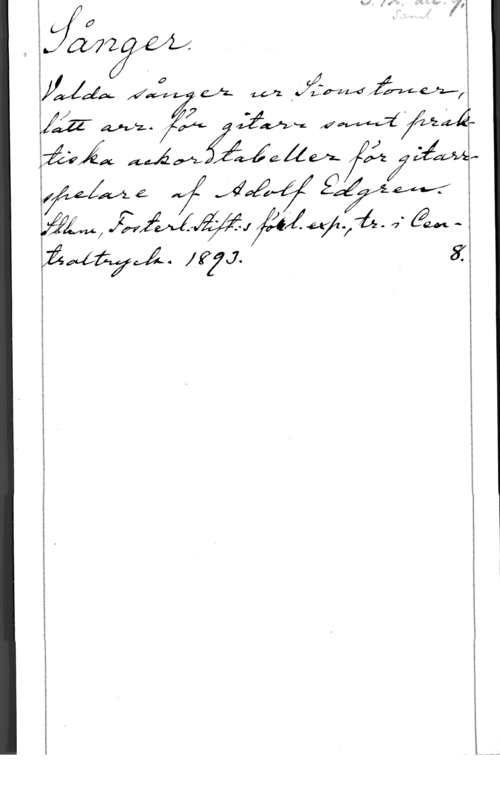 Saml
Sånger.
Valda sånger ur Sionstoner,
lätt arr. för gitarr samt prak-
tiska ackordtabeller för gitarr-
spelare af Adolf Edgren.
Sthlm, Fosterl. Stift:s förl. exp., tr. i Cen-
traltryck. 1893. 8.